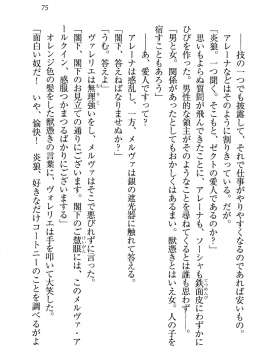 75
――技の一つでも披露して、それで仕事がやりやすくなるのであれば安いもの。
アレーナなどはそのように割りきっている。だが――
「炎狼。一つ聞く。そこは、ゼクトの愛人ですかな？」
思いもよらぬ質問が飛んできたことに、アレーナも、ソーシャも鉄面皮にわずかに
ひびを作った。男性的な領主がそのようなことを尋ねてくるとは誰も思わず――
「男と女。関係があったとしてもおかしくはない。獣憑きとはいえ女。人の子を
宿すこともあろう」
――あ、愛人ですって？
アレーナは惑乱し、一方、メルヴァは銀の遮光器に触れて答える。
「閣下、答えねばなりませぬか？」
「うむ。答えよ」
ヴァレリエは無理強いをし、メルヴァはそこで悪びれずに言った。
「閣下、閣下のお見立ての通りにございます。閣下のご慧眼には、このメルヴァ・ア
ールクイン、感服つかまつるばかりにございます」
オレンジ色の髪をした獣憑きの言葉に、ヴォレリエは手を叩いて大笑した。
「面白い奴だ！　いや、愉快！　炎狼、好きなだけコートニーのことを調べるがよ